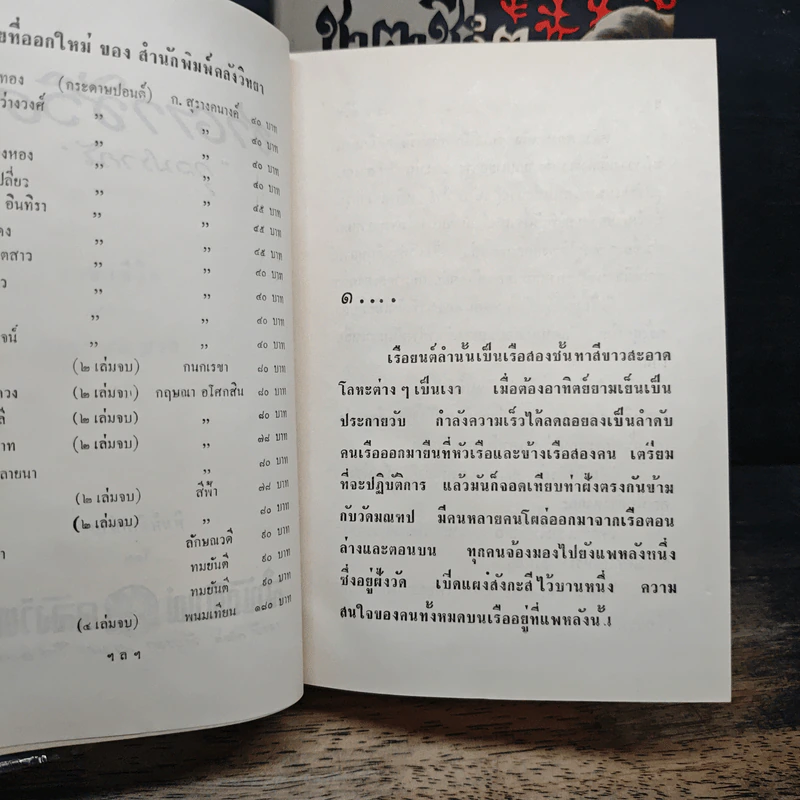 ชะตาชีวิต
ยที่ออกใหม่ ของ สำนักพิมพ์คลังวิทยา
ทอง (กระดาษปอนด์) ก. สุรางคนางค์ ๔๐ บาท
ว่างวงศ์ ,, ,, ๔๐ บาท
,, ,, ๔๐ บาท
งหอง ,, ,, ๔๐ บาท
ปลี่ยว ,, ,, ๔๐ บาท
อินทิรา ,, ,, ๔๕ บาท
คง ,, ,, ๔๕ บาท
ตสาว ,, ,, ๔๕ บาท
ว ,, ,, ๔๐ บาท
,, ,, ๔๐ บาท
,, ,, ๔๐ บาท
จน์ ,, ,, ๔๐ บาท
(๒ เล่มจบ) กนกเรขา ๘๐ บาท
ดวง (๒ เล่มจบ) กฤษณา อโศกสิน ๘๐ บาท
ลี (๒ เล่มจบ) ,, ๘๐ บาท
าท (๒ เล่มจบ) ,, ๗๘ บาท
ลายนา ,, ๘๐ บาท
(๒ เล่มจบ) สีฟ้า ๗๘ บาท
(๒ เล่มจบ) ,, ๘๐ บาท
า ลักษณวดี ๙๐ บาท
ทมยันตี ๙๐ บาท
ทมยันตี ๙๐ บาท
(๔ เล่มจบ) พนมเทียน ๑๘๐ บาท
ฯลฯ
๑....
เรือยนต์ลำนั้นเป็นเรือสองชั้น ทาสีขาวสะอาด
โลหะต่าง ๆ เป็นเงา เมื่อต้องอาทิตย์ยามเย็นเป็น
ประกายวับ กำลังความเร็วได้ลดถอยลงเป็นลำดับ
คนเรือออกมายืนที่หัวเรือและข้างเรือสองคน เตรียม
ที่จะปฏิบัติการ แล้วมันก็จอดเทียบท่าฝั่งตรงกันข้าม
กับวัดมณฑป มีคนหลายคนโผล่ออกมาจากเรือตอน
ล่างและตอนบน ทุกคนจ้องมองไปยังแพหลังหนึ่ง
ซึ่งอยู่ฝั่งวัด เปิดแผงสังกะสีไว้บานหนึ่ง ความ
สนใจของคนทั้งหมดบนเรืออยู่ที่แพหลังนั้น